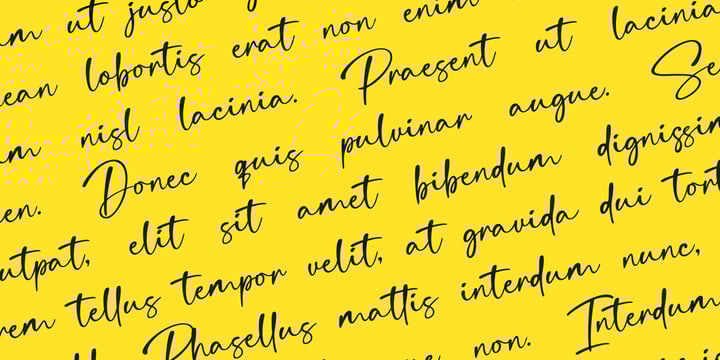 um ut justo
ean lobortis erat non enim
um nisl lacinia. Praesent ut lacinia
en. Donec quis pulvinar augue. Se
utpat, elit sit amet bibendum dignissim
rem tellus tempor velit, at gravida dui tort
Phasellus mattis interdum nunc,
non. Interdum